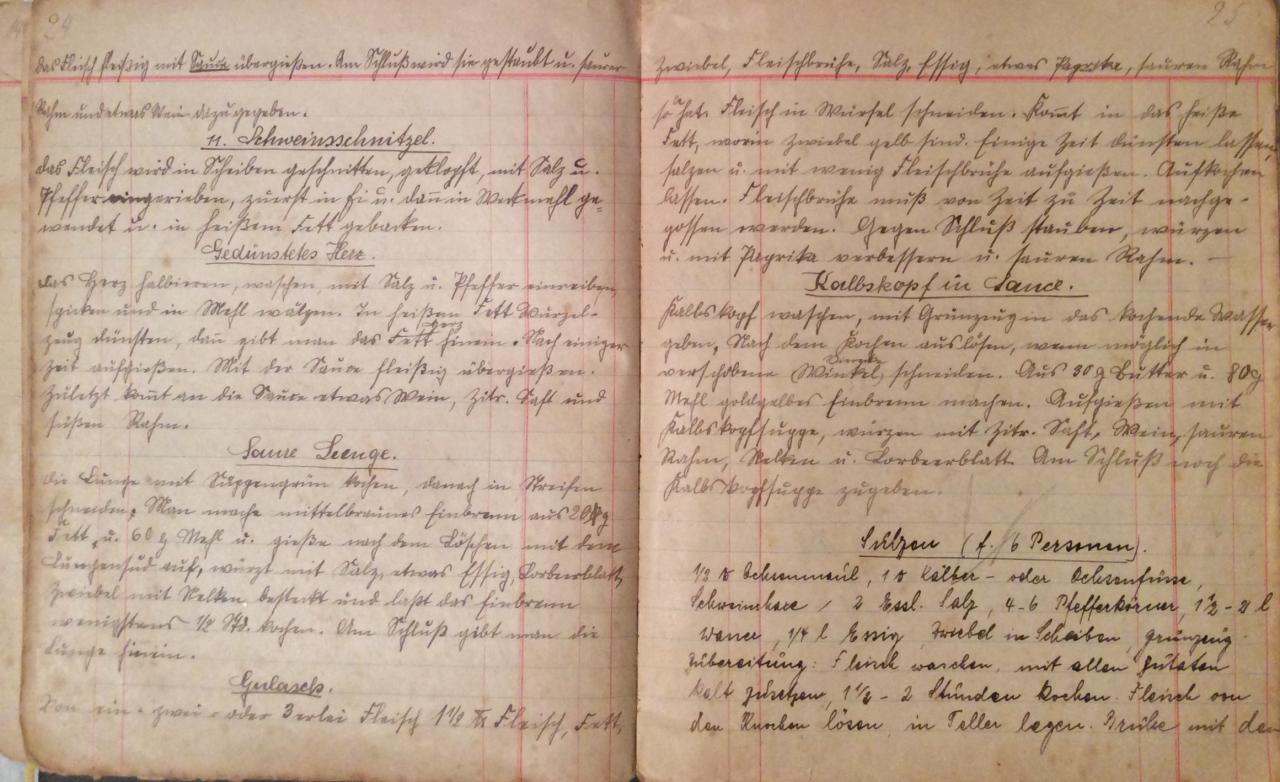 24
das Fleisch fleißig mit Sauce übergießen. Am Schluß wird sie gestaubt u. saurer
Rahm und etwas Wein dazu gegeben.
11. Schweinsschnitzel.
das Fleisch wird in Scheiben geschnitten, geklopft, mit Salz u.
Pfeffer eingerieben, zuerst in Ei u. dañ in Weckmehl ge-
wendet u. in heißem Fett gebacken.
Gedünstetes Herz.
das Herz halbieren, waschen, mit Salz u. Pfeffer einreiben,
spicken und in Mehl wälzen. In heißem Fett Wurzel-
zeug dünsten, dañ gibt man das Fett Herz hinein. Nach einiger
Zeit aufgießen. Mit der Sauce fleißig übergießen.
Zuletzt kom̃t an die Sauce etwas Wein, Zitr. Saft und
süßen Rahm.
Saure Lunge.
die Lunge mit Suppengrün kochen, danach in Streifen
schneiden. Man mache mittelbraunes Einbrenn aus 20 g
Fett u. 60 g Mehl u. gieße nach dem Löschen mit dem
Lungensud auf, würzt mit Salz, etwas Essig, Lorbeerblatt,
Zwiebel mit Nelken besteckt und laßt das Einbrenn
wenigstens 1/2 Std. kochen. Am Schluß gibt man die
Lunge hinein.
Gulasch.
Von ein- zwei- oder 3 erlei Fleisch 1 1/2 ℔ Fleisch, Fett,
25
Zwiebel, Fleischbrühe, Salz, Essig, etwas Paprika, sauren Rahm
Fleisch in Würfel schneiden. Kom̃t in das heiße
Fett, worin Zwiebel gelb sind. Einige Zeit dünsten lassen,
salzen u. mit wenig Fleischbrühe aufgießen. Aufkochen
lassen. Fleischbrühe muß von Zeit zu Zeit nachge-
gossen werden. Gegen Schluß stauben, würzen
u. mit Paprika verbessern u. sauren Rahm. –
Kalbskopf in Sauce.
Kalbskopf waschen, mit Grünzeug in das kochende Wasser
geben. Nach dem Kochen auslösen, wenn möglich in
verschobene Winkel schneiden. Aus 30 g Butter u. 80 g
Mehl goldgelbes Einbrenn machen. Aufgießen mit
Kalbskopfsuppe, würzen mit Zitr. Saft, Wein, sauren
Rahm, Nelken u. Lorbeerblatt. Am Schluß noch die
Kalbskopfsuppe zugeben.
Sulzen (f. 6 Personen).
1/2 ℔ Ochsenmaul, 1 ℔ Kälber- oder Ochsenfüsse,
2 Essl. Salz, 4-6 Pfefferkörner, 1 1/2 - 2 l
Wasser, 1/4 l Essig, Zwiebel in Scheiben, grünzeug
Zubereitung: Fleisch waschen, mit allen Zutaten
kalt zusetzen, 1 1/2 - 2 Stunden kochen. Fleisch von
den Knochen lösen, in Teller legen. Brühe mit dem